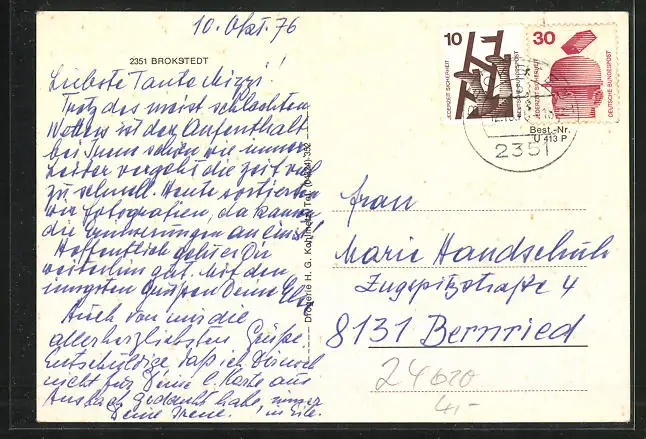 10. Okt. 76
2351 BROKSTEDT
Liebste Tante Mizzi!
Trotz des meist schlechten
Wetters ist der Aufenthalt
bei Irene schön wie immer
leider vergeht die Zeit viel
zu schnell. Heute sortierten
wir Fotografien, da kamen
die Erinnerungen an einst.
Hoffentlich geht es Dir
weiterhin gut. Mit den
innigsten Grüßen Deine
Auch von mir die
allerherzlichsten Grüße.
Entschuldige, daß ich Dir noch
nicht für Deine l. Karte aus
Ansbach gedankt habe, immer
Deine Irene. in Eile.
Drogerie H. G. Tel. (04324) 352
10
JEDERZEIT SICHERHEIT
DEUTSCHE BUNDESPOST
30
JEDERZEIT SICHERHEIT
DEUTSCHE BUNDESPOST
2351
Best.-Nr.
U 413 P
Frau
Marie Handschuh
Zugspitzstraße 4
8131 Bernried
24620
4,-